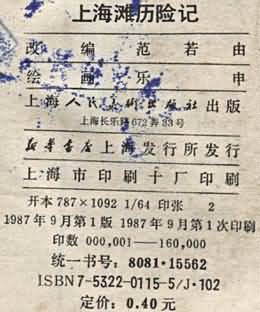 上海滩历险记
改编 范若由
绘画 乐申
上海人民美术出版社出版
上海长乐路672弄33号
新华书店上海发行所发行
上海市印刷十厂印刷
开本787×1092 1/64 印张 2
1987年9月第1版 1987年9月第1次印刷
印数 000,001—160,000
统一书号：8081·15562
ISBN7-5322-0115-5/J·102
定价：0.40元